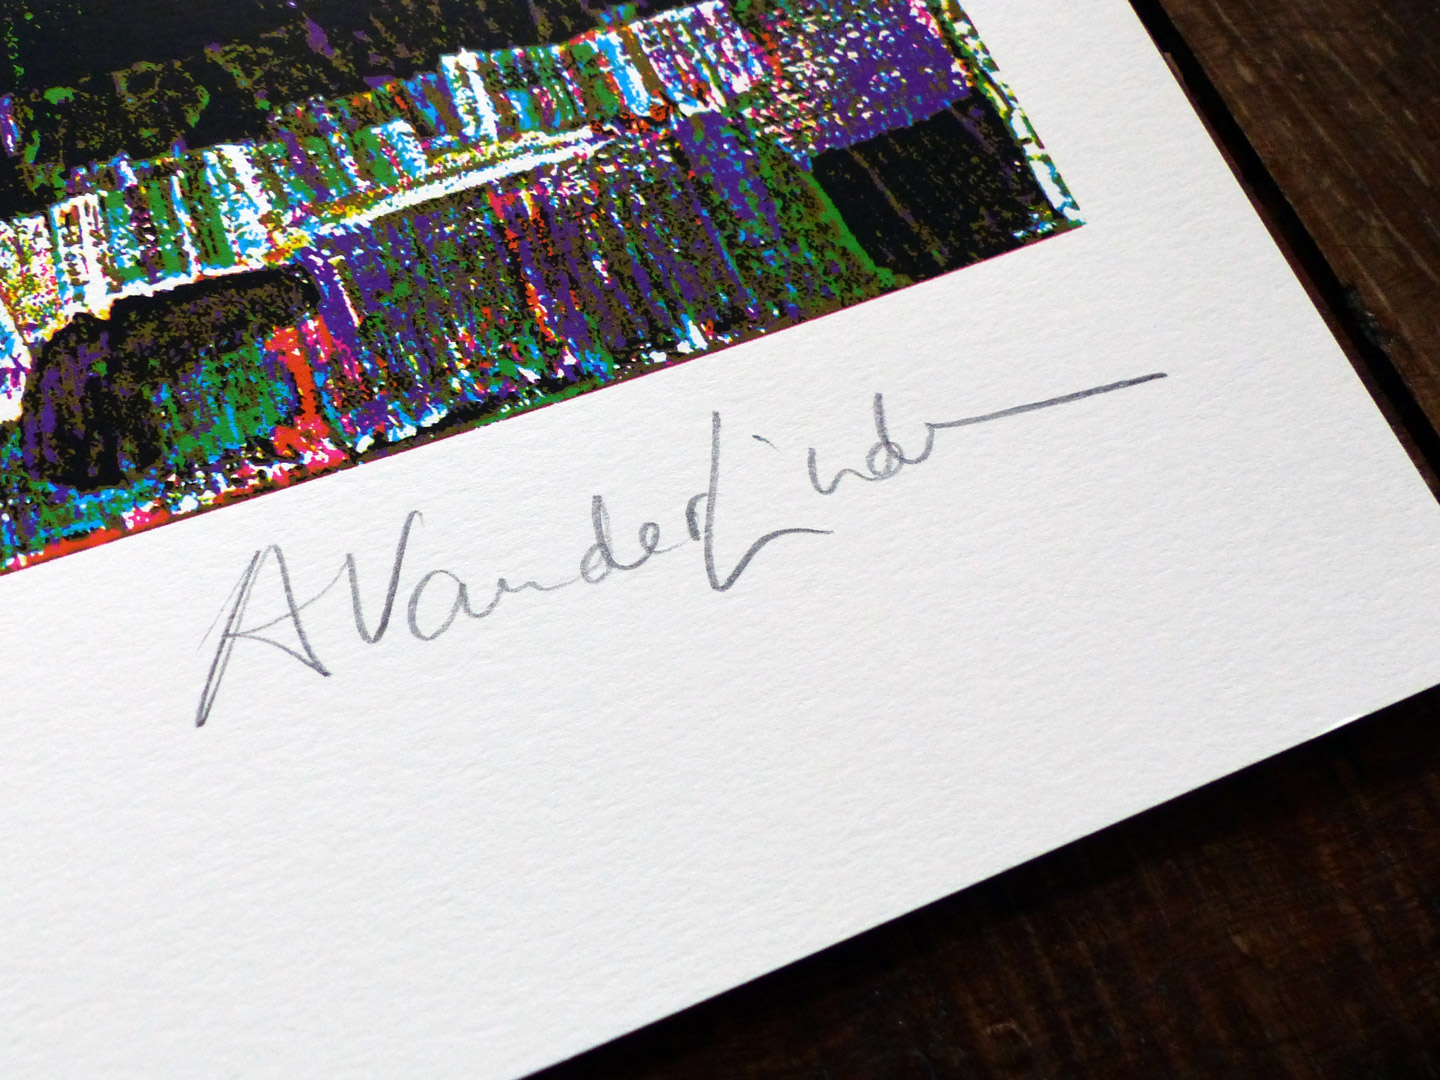 A VanderLinde